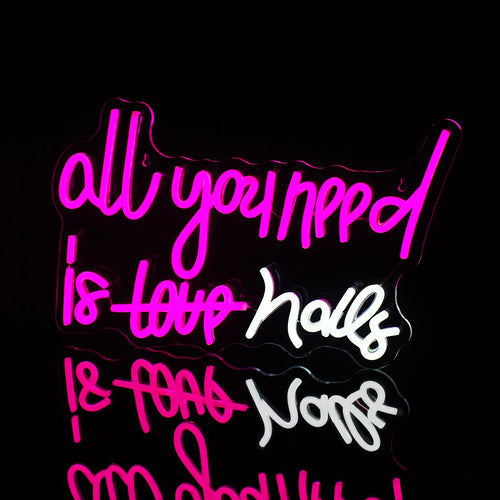 all you need
is ~~love~~ nails